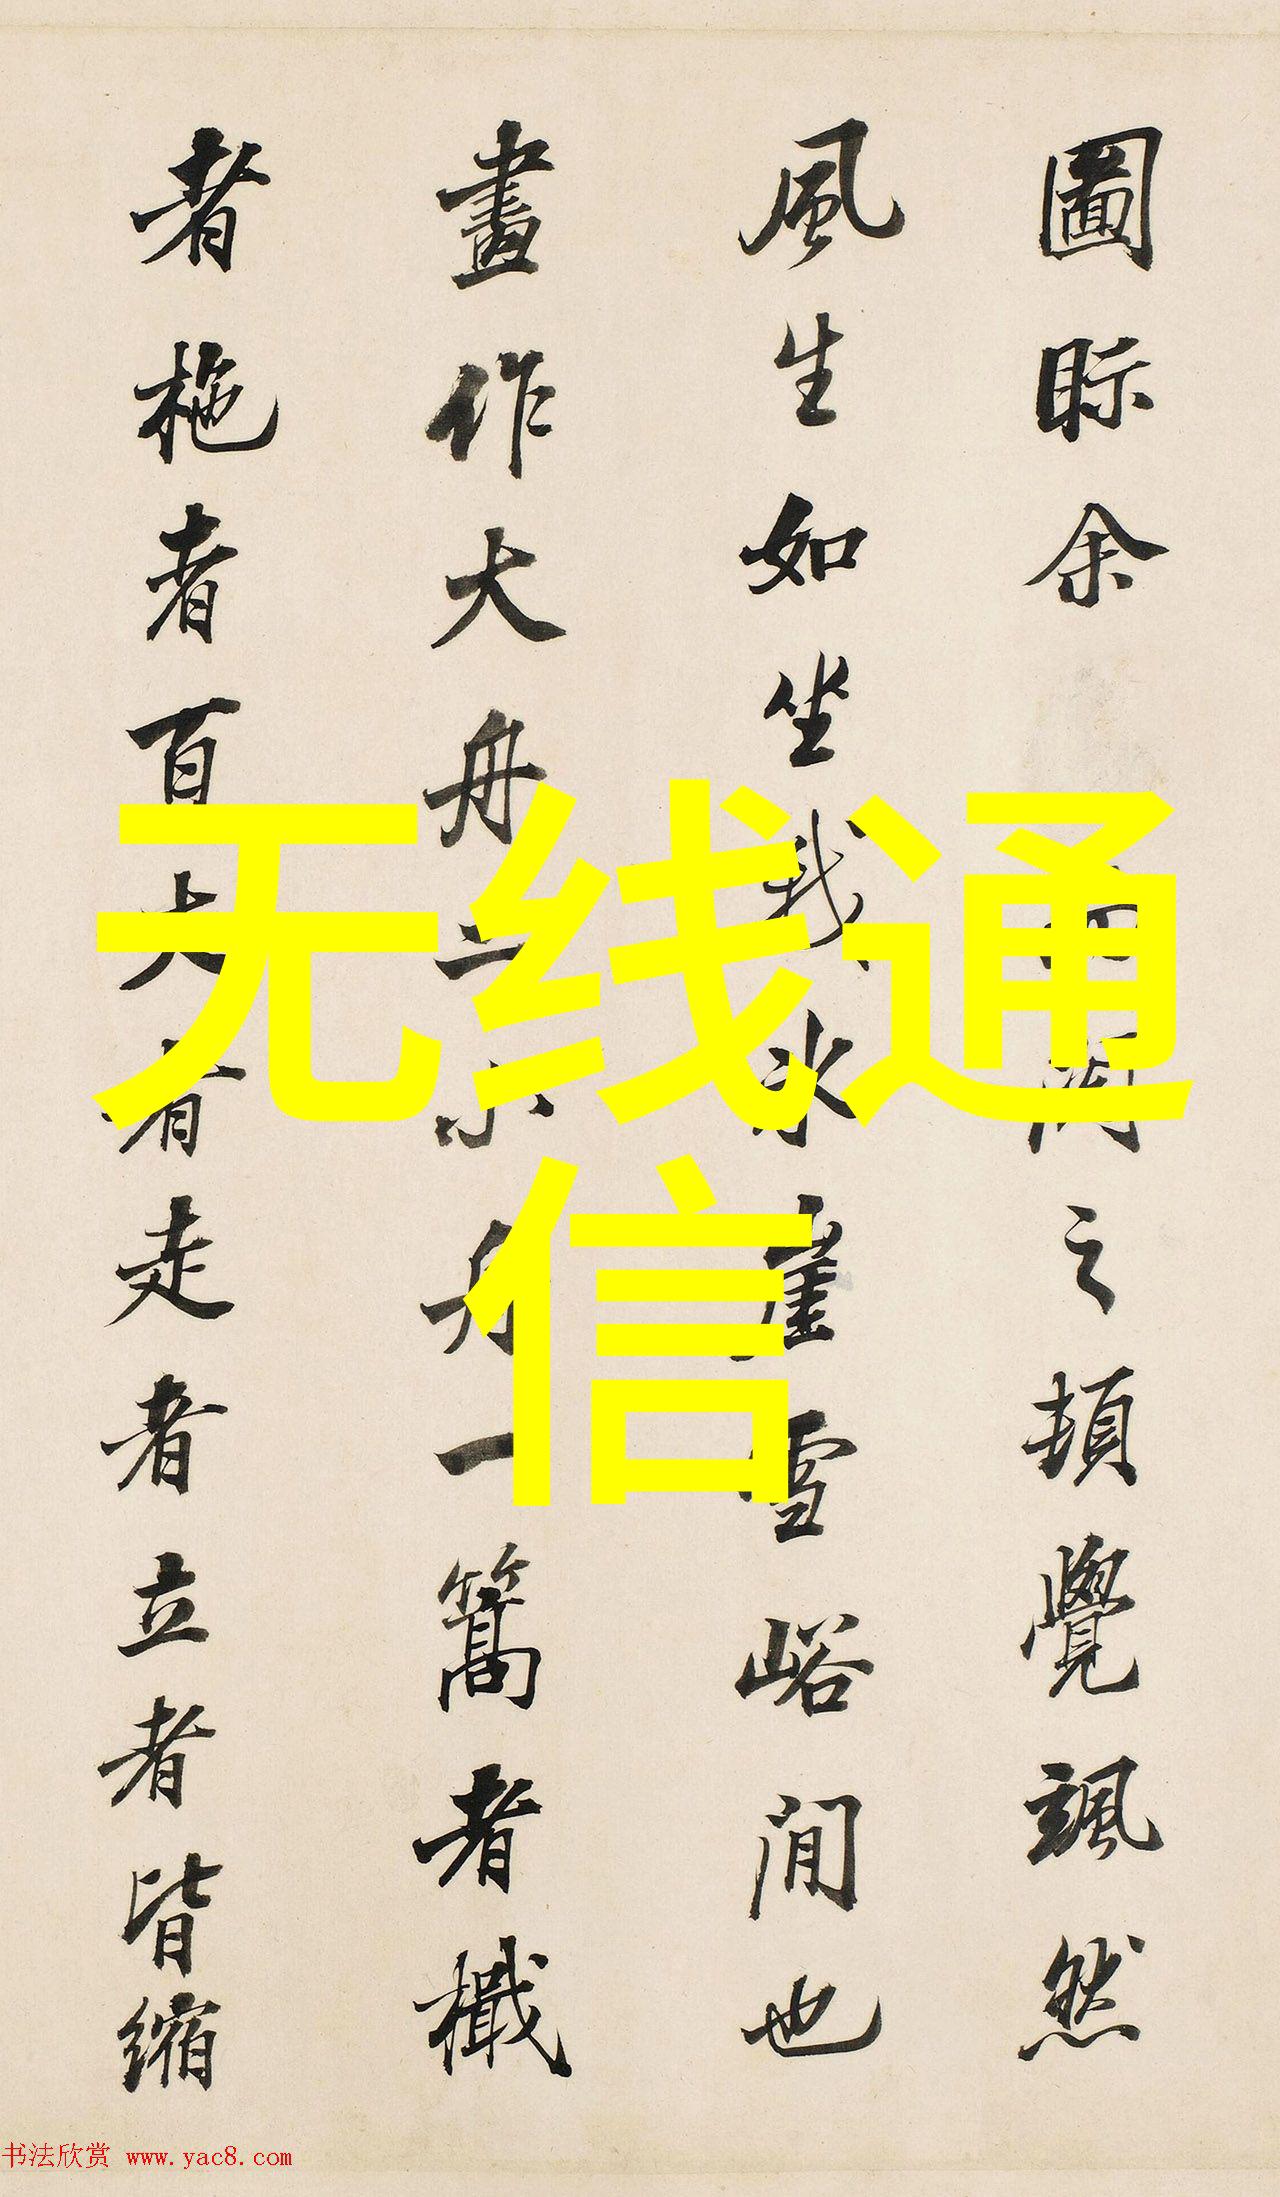 圖眎余
之頓覺颯然
風生如坐我冰崖雪峪間也
畫作大舟二小舟一篙者檝
者柂者百丈者走者立者皆縮
无线通
信
书法欣赏 www.yac8.com